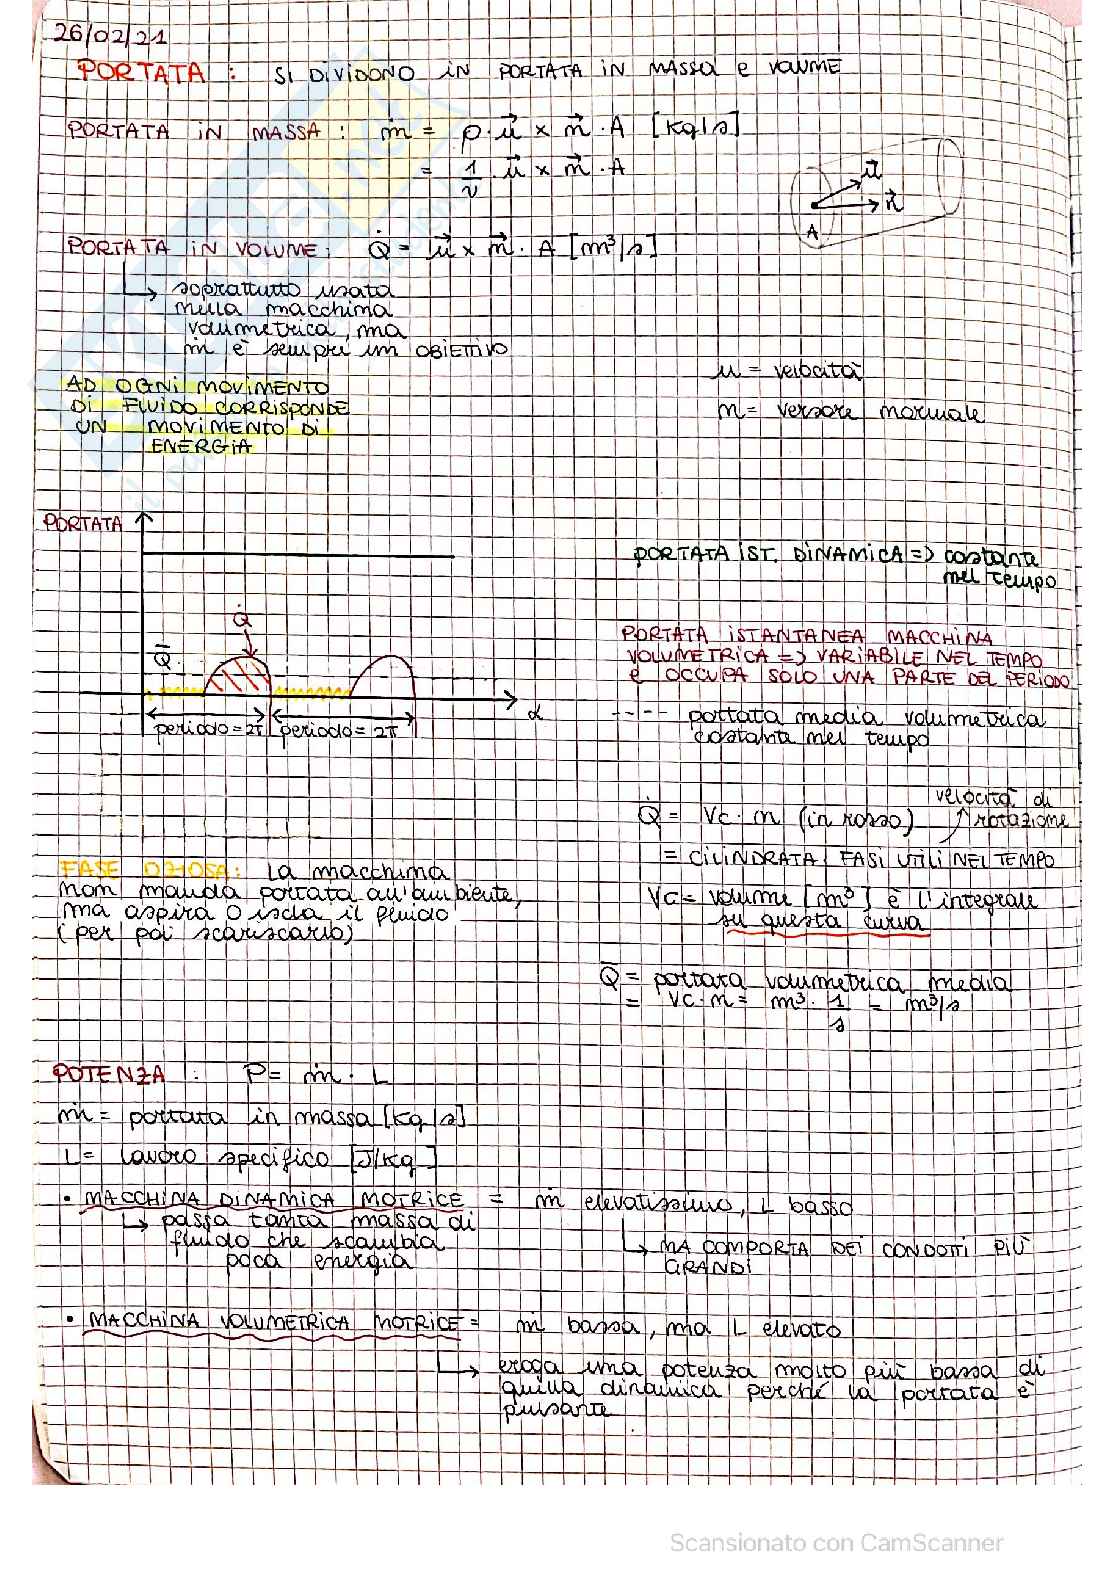 26/02/21
PORTATA : SI DIVIDONO IN PORTATA IN MASSA e VOLUME
PORTATA IN MASSA : ṁ = ρ·u⃗ × n⃗ · A [Kg/s]
= 1/v · u⃗ × n⃗ · A
u⃗
n⃗
A
PORTATA IN VOLUME: Q̇ = u⃗ × n⃗ · A [m³/s]
↳ soprattutto usata
nella macchina
volumetrica, ma
ṁ è sempre un OBIETTIVO
u = velocità
n = versore normale
AD OGNI MOVIMENTO
DI FLUIDO CORRISPONDE
UN MOVIMENTO DI
ENERGIA
PORTATA
PORTATA IST. DINAMICA => costante
nel tempo
Q̇
Q̄
α
periodo = 2π periodo = 2π
PORTATA ISTANTANEA MACCHINA
VOLUMETRICA => VARIABILE NEL TEMPO
e OCCUPA SOLO UNA PARTE DEL PERIODO
----- portata media volumetrica
costante nel tempo
Q̇ = Vc · n (in rosso) ↗ velocità di rotazione
= CILINDRATA FASI UTILI NEL TEMPO
Vc = volume [m³] è l'integrale
su questa curva
FASE OZIOSA: La macchina
non manda portata all'ambiente,
ma aspira o isola il fluido
(per poi scariscarlo)
Q̄ = portata volumetrica media
= Vc · n = m³ · 1/s = m³/s
POTENZA : P = ṁ · L
ṁ = portata in massa [Kg/s]
L = lavoro specifico [J/Kg]
• MACCHINA DINAMICA MOTRICE = ṁ elevatissimo, L basso
↳ passa tanta massa di
fluido che scambia
poca energia
↳ MA COMPORTA DEI CONDOTTI PIÙ
GRANDI
• MACCHINA VOLUMETRICA MOTRICE = ṁ bassa, ma L elevato
↳ eroga una potenza molto più bassa di
quella dinamica perché la portata è
pulsante
Scansionato con CamScanner